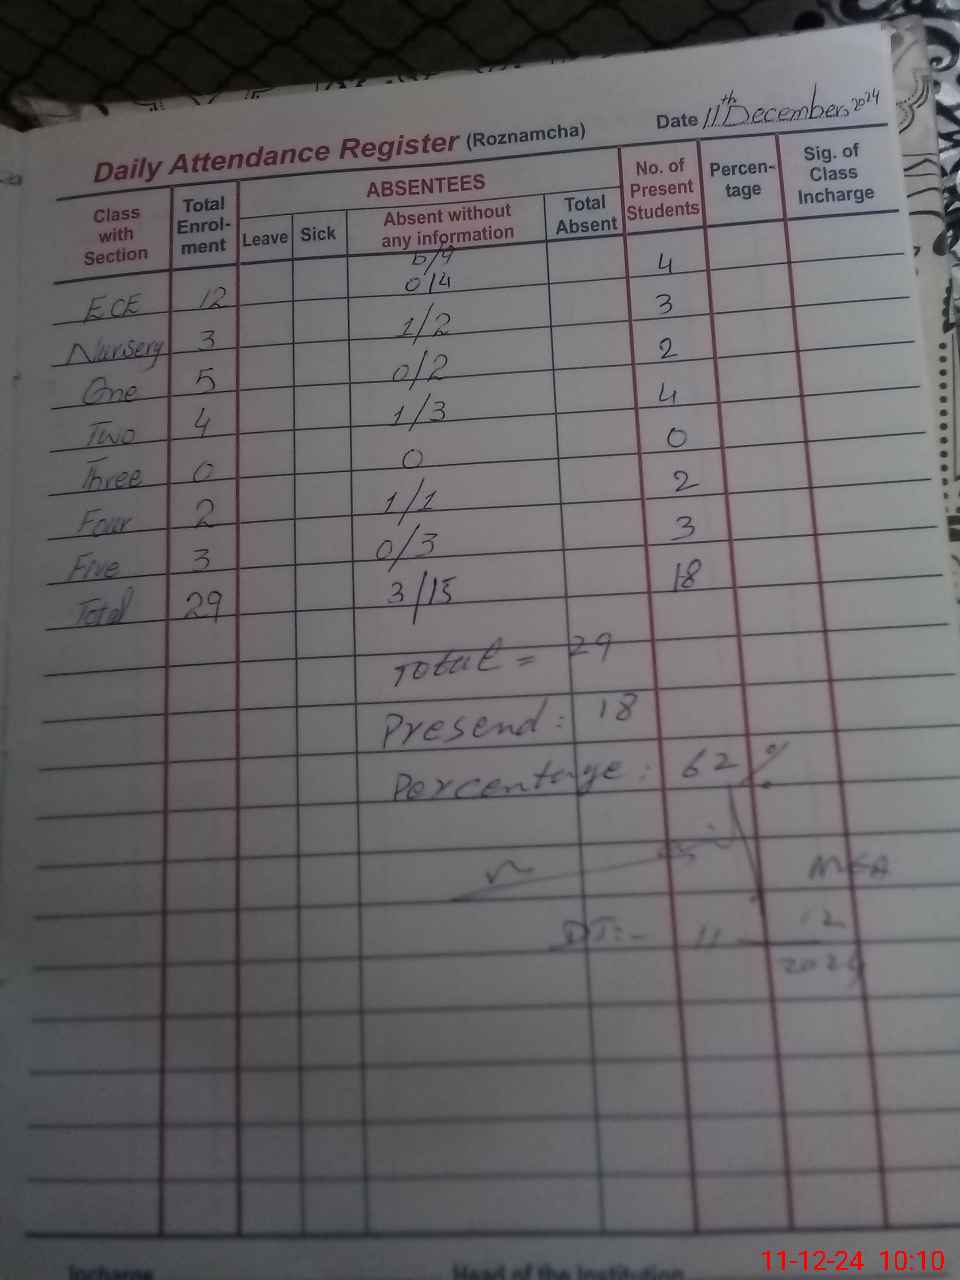 Date 11th December, 2024
Daily Attendance Register (Roznamcha)
Class with Section Total Enrol-ment ABSENTEES Leave Sick Absent without any information Total Absent No. of Present Students Percen-tage Sig. of Class Incharge
b/g
ECE 12 0/4 4
Nursery 3 1/2 3
One 5 0/2 2
Two 4 1/3 4
Three 0 0 0
Four 2 1/1 2
Five 3 0/3 3
Total 29 3/15 18
Total = 29
Presend: 18
Percentage: 62 %
MEA
DT:- 11 - 12
2024
Incharge Head of the Institution
11-12-24 10:10